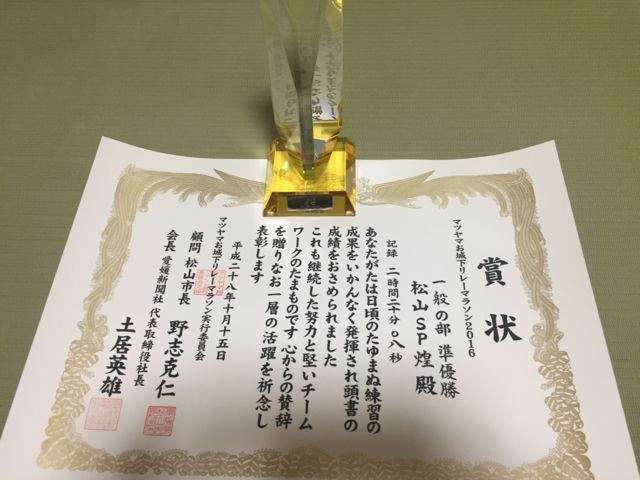 賞状
マツヤマお城下リレーマラソン2016
一般の部 準優勝
松山SP煌 殿
記録 二時間二十分〇八秒
あなたがたは日頃のたゆまぬ練習の
成果をいかんなく発揮され頭書の
成績をおさめられました
これも継続した努力と堅いチーム
ワークのたまものです 心からの賛辞
を贈りなお一層の活躍を祈念し
表彰します
平成二十八年十月十五日
マツヤマお城下リレーマラソン実行委員会
顧問 松山市長 野志克仁
会長 愛媛新聞社 代表取締役社長
土居英雄